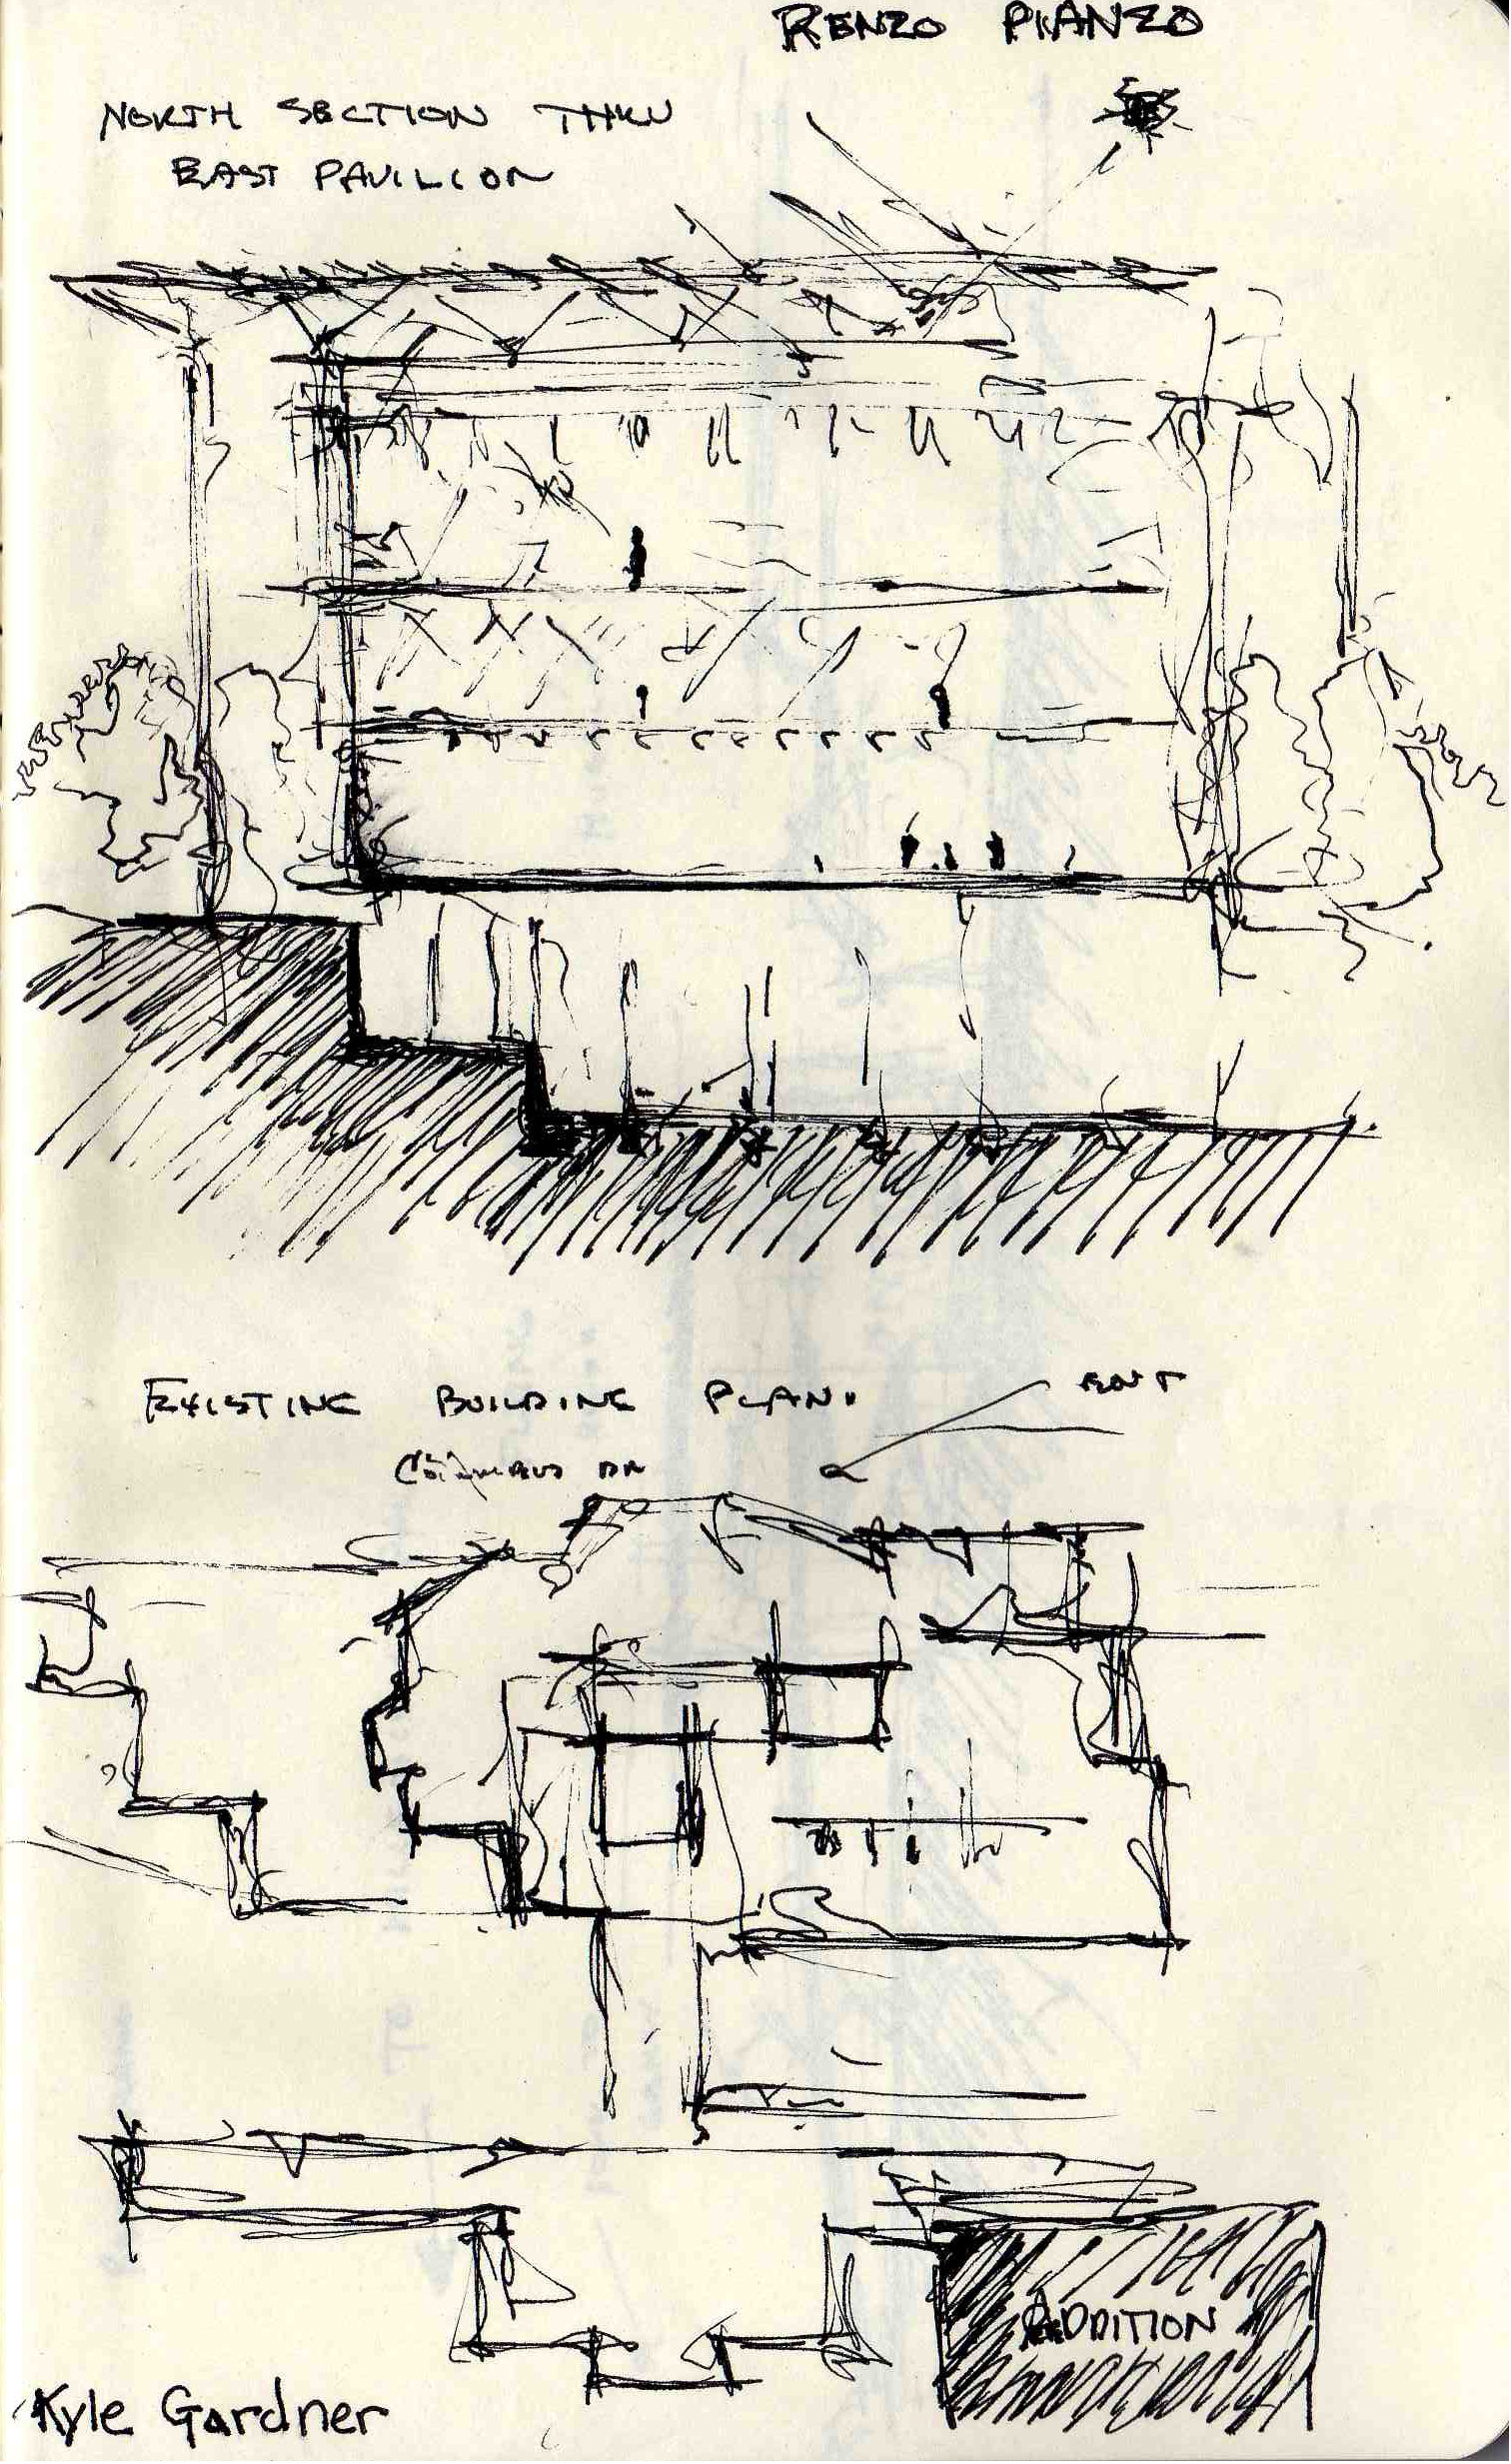 RENZO PIANZO
NORTH SECTION THRU
EAST PAVILION
EXISTING BUILDING PLAN.
ENT
ADDITION
Kyle Gardner